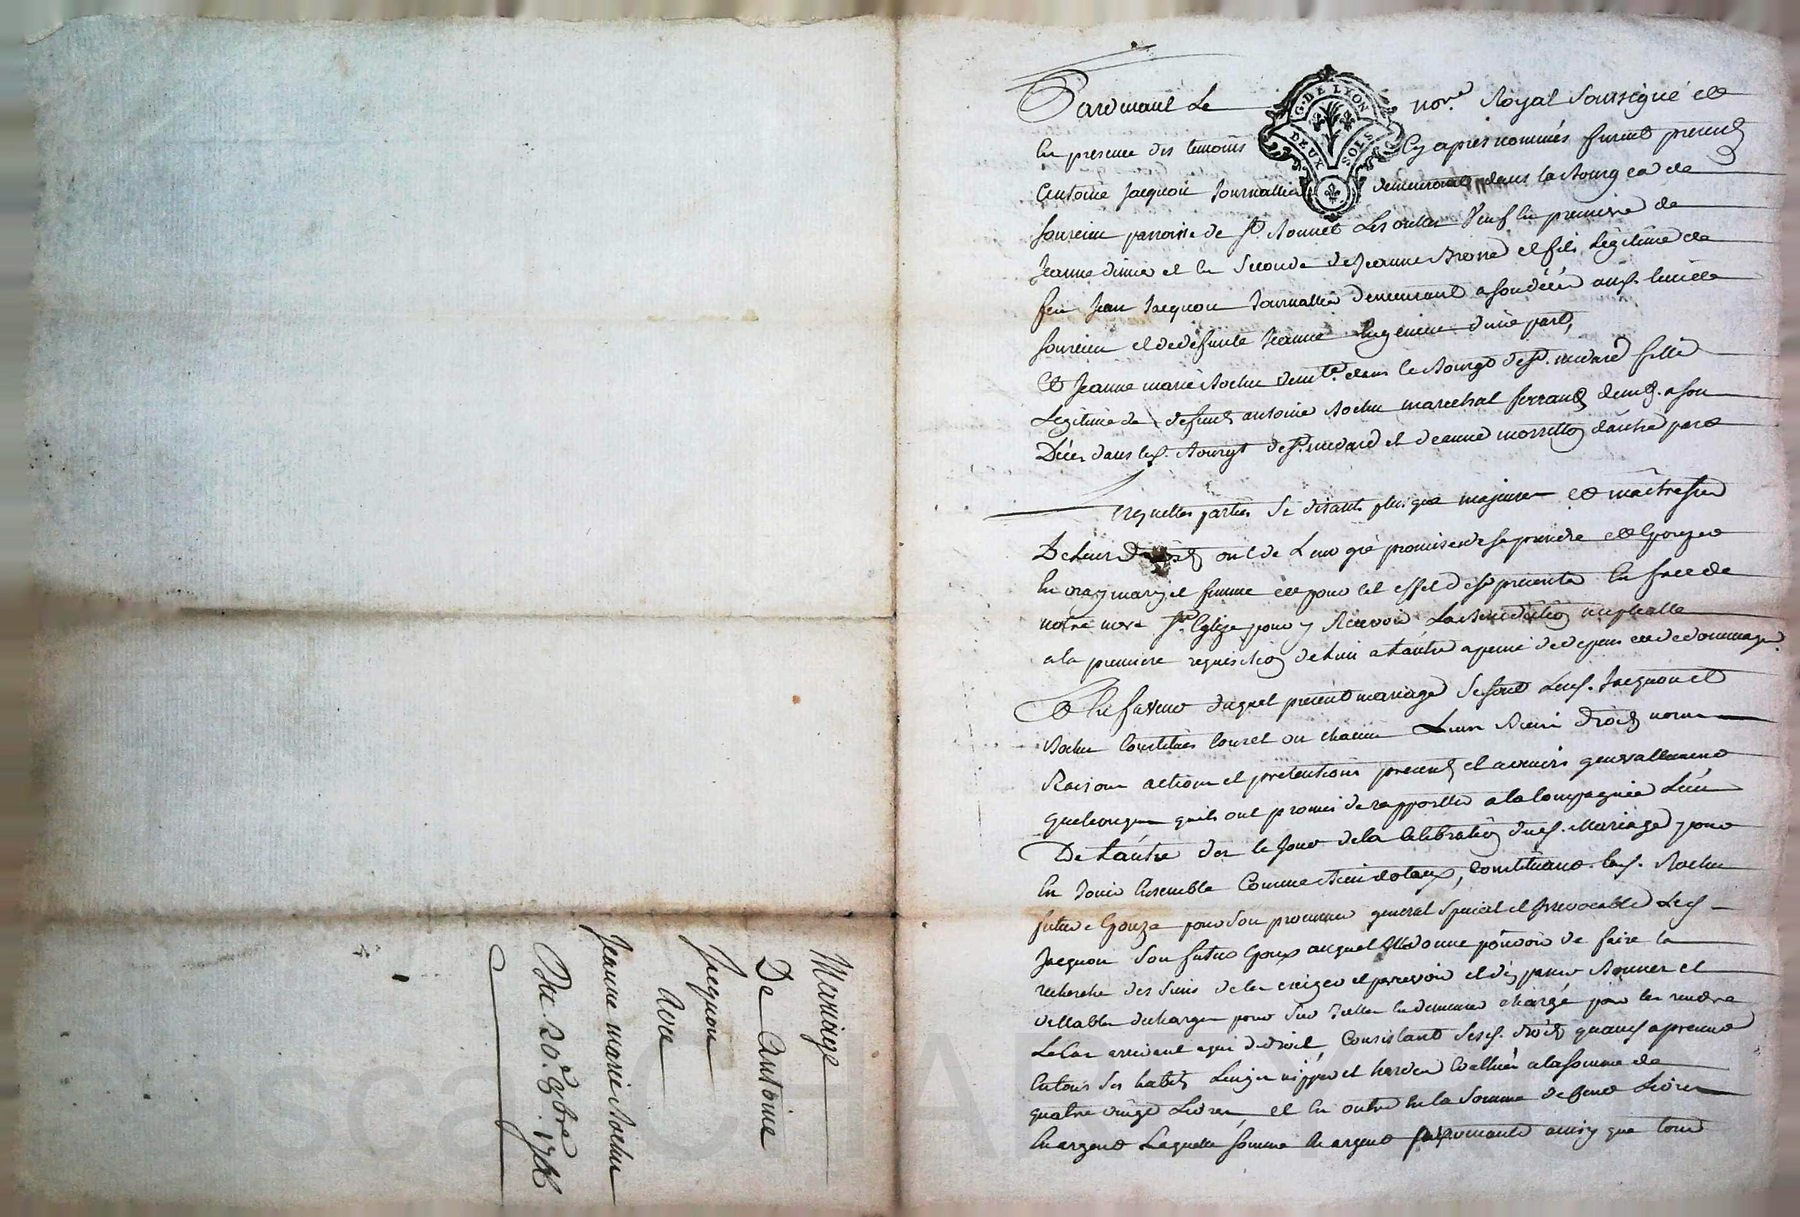 Pardevant Le nore. Royal soussigné et
En presence des temoins Cy apres nommés furent presents
Antoine Jacquon Journallier demeurant dans le Bourg de
paroisse de St. Bonnet Les oulles Veuf En premiere de
Jeanne et En seconde de Jeanne Brosse et fils Legitime de
feu Jean Jacquon Journallier demeurant a son décéd aud. lieu de
et de defunte Jeanne d'une part,
Et Jeanne marie Rochu demte. dans le Bourgt de St. medard fille
Legitime de defunt antoine Rochu marechal ferrand demt. a son
Décés dans led. Bourgt de St. medard et de anne d'autre part
Lesquelles parties se disants plus que majeures et maitresses
De Leurs Droits ont de Leur gré promis de se prendre et Epouzer
En vray mary et femme et pour cet effet de se presenter En face de
notre mere Ste. Eglize pour y Recevoir La Benediction nuptialle
a la premiere requisition de L'un a L'autre a peine de depens et de dommages
Et En faveur duquel present mariage se sont Lesd. Jacquon et
Rochu Constitués tout et un chacun Leurs Biens droits noms
Raisons actions et pretentions presents et avenirs generallement
quelconques quils ont promis de rapporter a la compagnie L'un
De L'autre des le Jour de la Celebration dud. Mariage pour
En Jouir Ensemble Comme Biens dotaux, constituant lad. Rochu
future Epouze pour son procureur general special et Irrevocable Led.
Jacquon son futur Epoux auquel Elle donne pouvoir de faire la
recherche des siens de les exiger et percevoir et d'en passer Bonnes et
vallables decharges pour par Icelluy En demeurer chargé pour les rendre
Le Cas arrivant a qui de droit, Consistant sesd. droits quant a present
En tous ses habits Linges nippes et hardes Evallués a la somme de
quatre vingt Livres et En outre En la somme de Cent Livres
En argent Laquelle somme En argent ainsy que tous
Mariage
De Antoine
Jacquon
Avec
Jeanne marie Rochu
Du 20e. 9bre 1786
G. DE LYON
DEUX SOLS